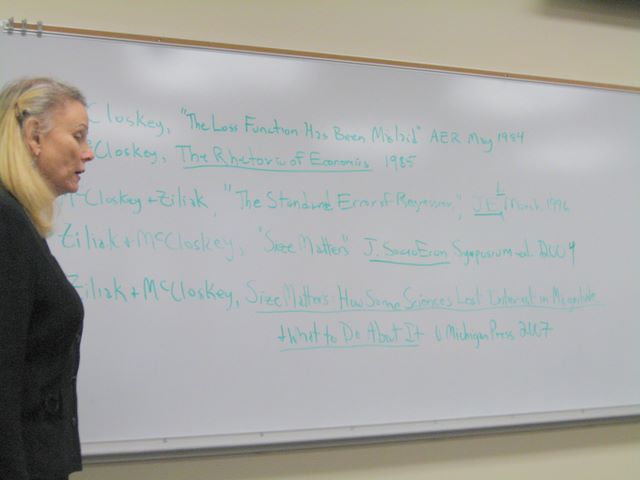 Closkey, "The Loss Function Has Been Mislaid" AER May 1984
cCloskey, The Rhetoric of Economics 1985
McCloskey + Ziliak, "The Standard Error of Regression," JEL March 1996
Ziliak + McCloskey, "Size Matters" J. Socio Econ Symposium 2004
Ziliak + McCloskey, Size Matters: How Some Sciences Lost Interest in Magnitude
+ What to Do About It Michigan Press 2007